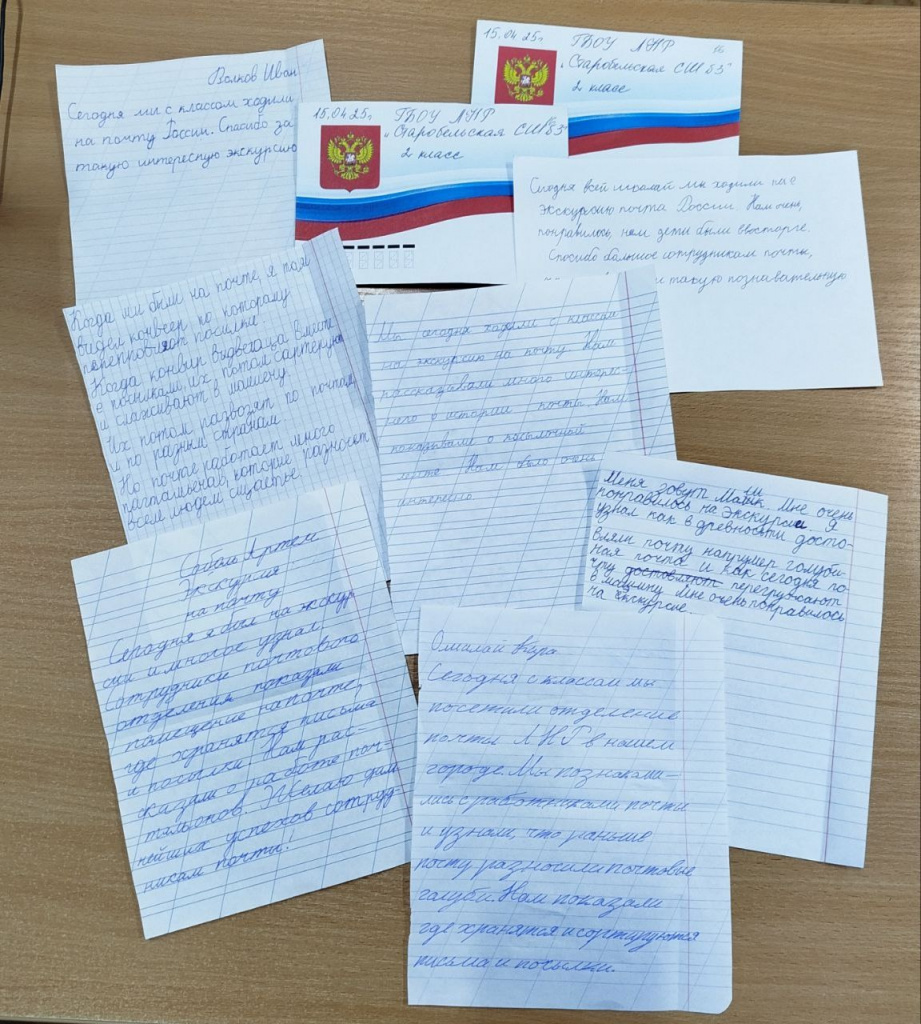 Волков Иван
Сегодня ми с классом ходили
на почту России. Спасибо за
такую интересную экскурсию
15.04 25г
ГБОУ ЛНР
"Старобельская СШ №3"
2 класс
15.04 25г
ГБОУ ЛНР
"Старобельская СШ №3"
2 класс
Сегодня всей мы ходили на
экскурсию почта России. Нам очень
понравилось, дети были
Спасибо большое сотрудникам почты,
такую познавательную
Когда ми были на почте, я там
видел конвеер по которому
посылки
Когда
их потом
и в машину
Их потом развозят по почтам,
и по разным странам
На почте работает много
которие разносят
всем людям
Мы сегодня ходили с классом
на экскурсию на почту Нам
рассказывали много интерес-
ного о истории почты. Нам
показывали о посылочный
Нам было очень
интересно
Меня зовут Мне очень
понравилось на экскурсии Я
узнал как в древности досто-
вляли почту например голуби-
ная почта и как сегодня по-
чту достовляют перегружают
в машину Мне очень понравилось
на экскурсие.
Собол Артем
Экскурсия
на почту
Сегодня я был на экскур
сии и многое узнал
Сотрудники почтового
отделения показали
помещение на почте,
где хранятся письма
и посылки. Нам рас-
сказали о работе поч-
тальонов. Желаю даль
нейших успехов сотруд-
никам почты!
Кира
Сегодня с классом мы
посетили отделение
почты ЛНР в нашем
городе. Мы познакоми-
лись с работниками почты
и узнали, что раньше
почту разносили почтовые
голуби. Нам показали
где хранятся и сортируются
письма и посылки.